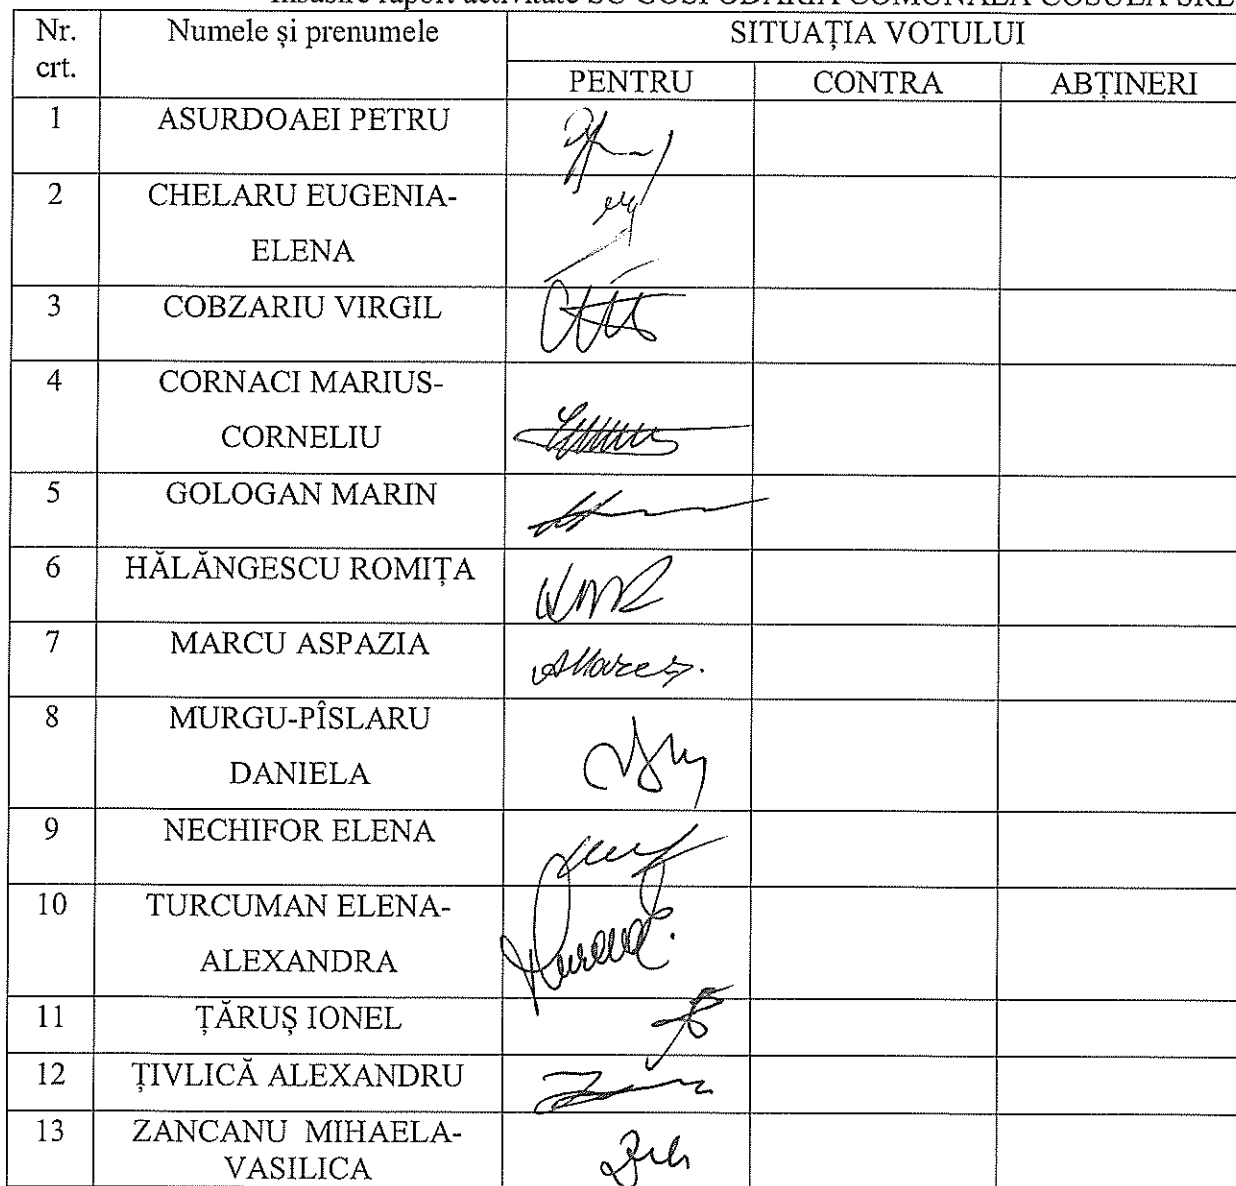 Însușire raport activitate SC GOSPODĂRIA COMUNALĂ COȘULA SRL
Nr. crt.
Numele și prenumele
SITUAȚIA VOTULUI
PENTRU
CONTRA
ABȚINERI
1 ASURDOAEI PETRU
2 CHELARU EUGENIA-
ELENA
3 COBZARIU VIRGIL
4 CORNACI MARIUS-
CORNELIU
5 GOLOGAN MARIN
6 HĂLĂNGESCU ROMIȚA
7 MARCU ASPAZIA
8 MURGU-PÎSLARU
DANIELA
9 NECHIFOR ELENA
10 TURCUMAN ELENA-
ALEXANDRA
11 ȚĂRUȘ IONEL
12 ȚIVLICĂ ALEXANDRU
13 ZANCANU MIHAELA-
VASILICA